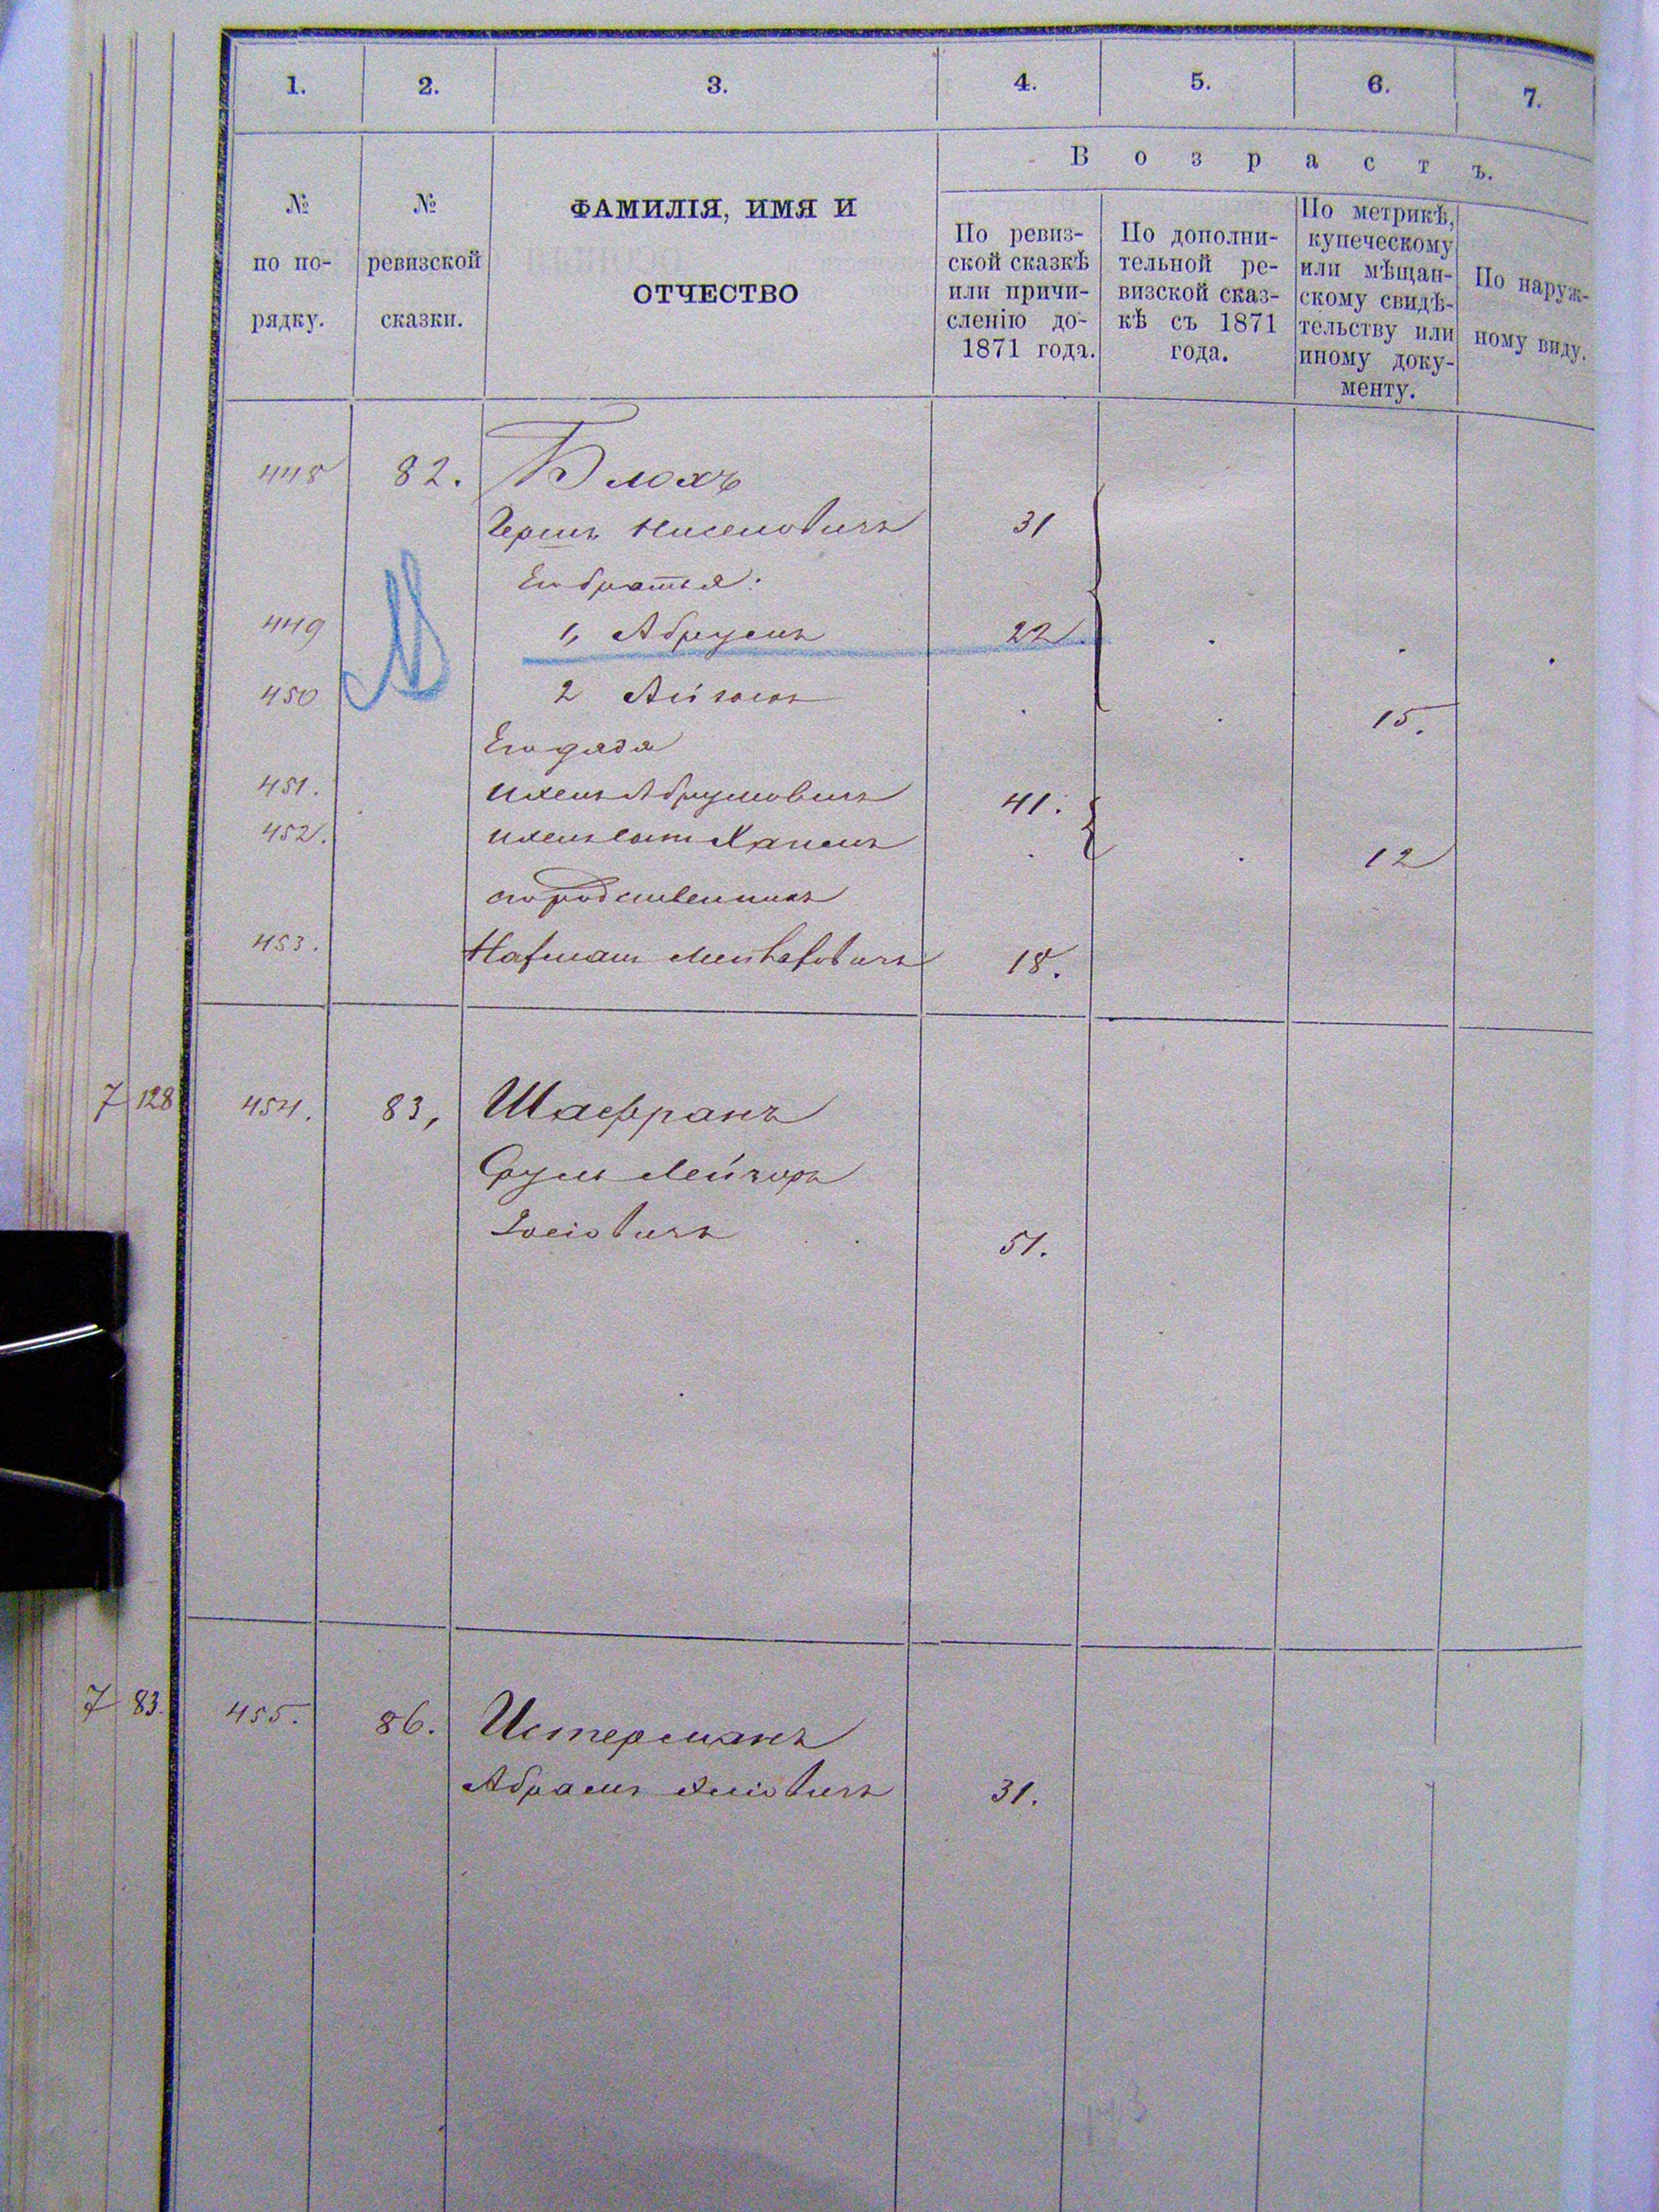 1. 2. 3. 4. 5. 6. 7.
№ по порядку.
№ ревизской сказки.
ФАМИЛІЯ, ИМЯ И
ОТЧЕСТВО
Возрастъ.
По ревиз-
ской сказкѣ
или причи-
сленію до
1871 года.
По дополни-
тельной ре-
визской сказ-
кѣ съ 1871
года.
По метрикѣ,
купеческому
или мѣщан-
скому свидѣ-
тельству или
иному доку-
менту.
По наруж-
ному виду.
448 82. Блохъ
Гершъ Нисемовичъ 31
Его братья:
449 1, Абрумъ 22
450 2 Айзикъ 15.
Его дядя
451. Ихелъ Абрумовичъ 41.
452. Ихеля сынъ Хаимъ 12
его родственникъ
453. 18.
7 128 454. 83, Шафранъ
Сруль Лейзоръ
Іосіовичъ 51.
7 83. 455. 86. Истерманъ
Абрамъ 31.